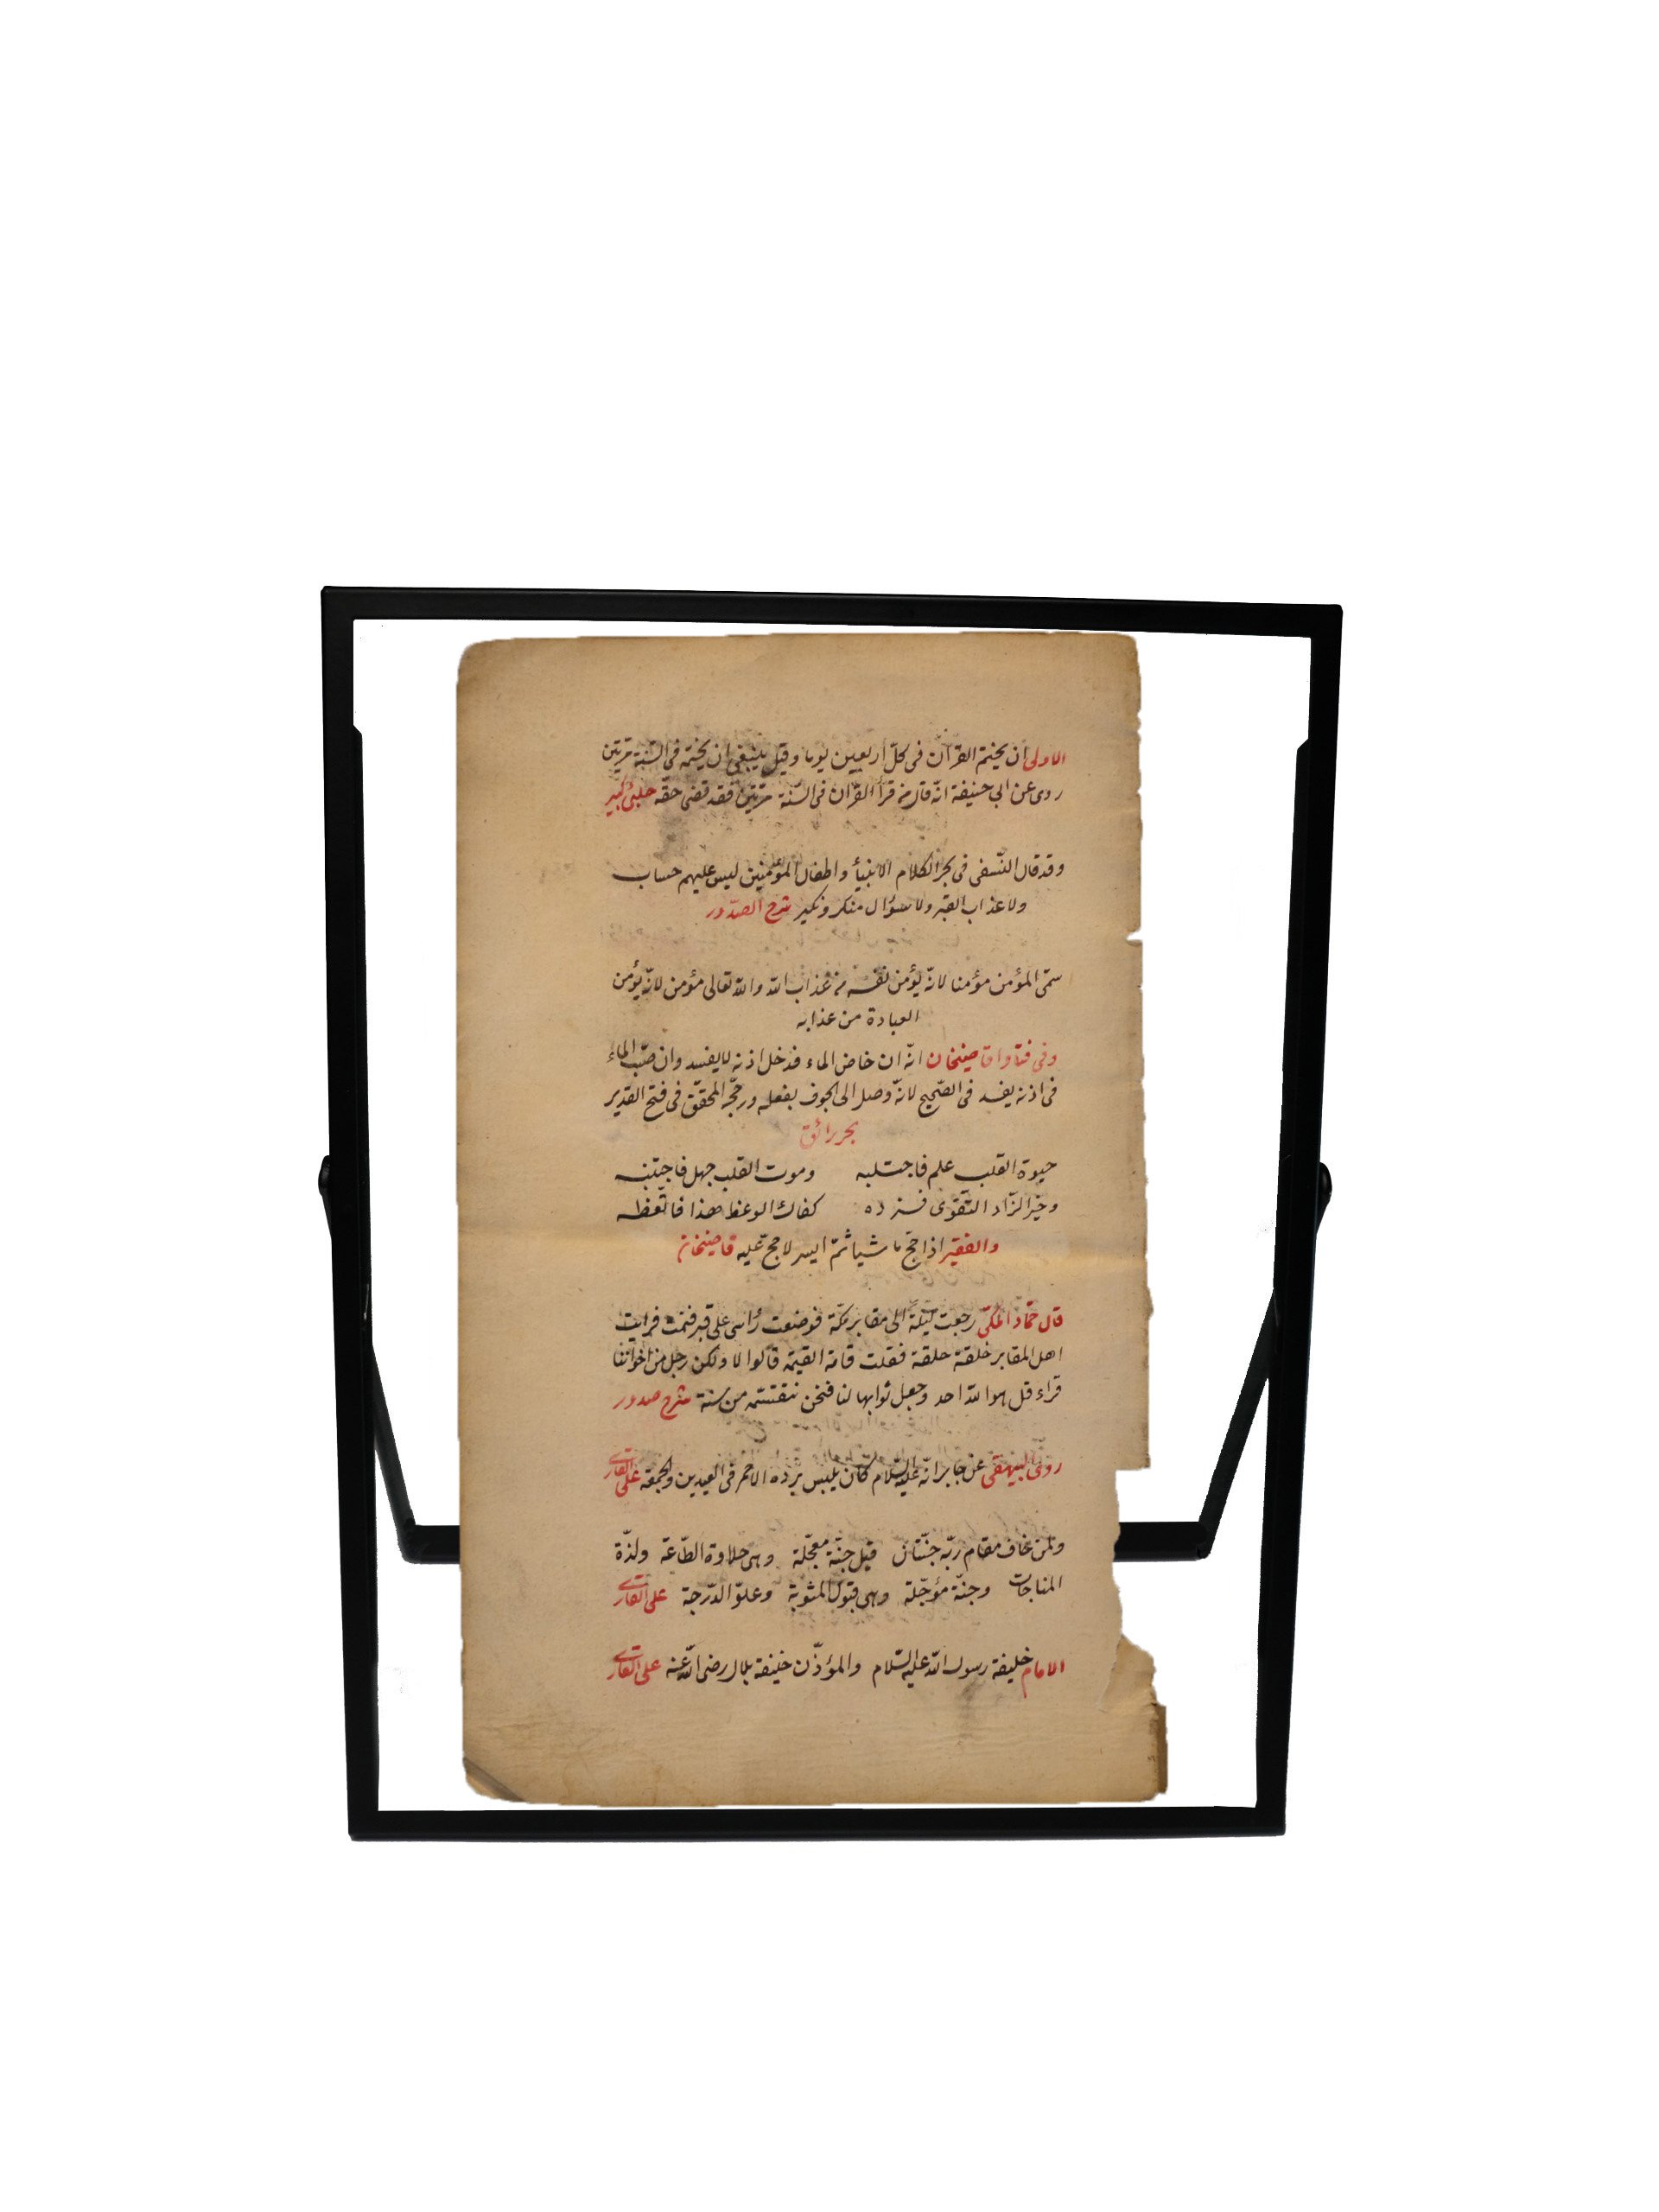 الاولى ان يختم القرآن فى كلّ اربعين يوما وقيل ينبغى ان يختمه فى السّنة مرّتين
روى عن ابى حنيفة انّه قال من قرأ القرآن فى السّنة مرّتين فقد قضى حقّه حلبىّ كبير
وقد قال النّسفى فى بحر الكلام الانبيأ واطفال المؤمنين ليس عليهم حساب
ولا عذاب القبر ولا سؤال منكر ونكير شرح الصّدور
سمّى المؤمن مؤمنا لانّه يؤمن نفسه من عذاب اللّه واللّه تعالى مؤمن لانّه يؤمن
العبادة من عذابه
وفى فتاوا قاضيخان انّه ان خاض الماء فدخل اذنه لا يفسد وان صبّ الماء
فى اذنه يفسد فى الصّحيح لانّه وصل الى الجوف بفعله ورجّحه المحقّق فى فتح القدير
بحر رائق
حيوة القلب علم فاجتلبه وموت القلب جهل فاجتنبه
وخير الزّاد التّقوى فزده كفاك الوعظ هذا فاتّعظه
والفقير اذا حجّ ماشيا ثمّ ايسر لا حجّ عليه قاضيخان
قال حمّاد المكّى رجعت ليلة الى مقابر مكّة فوضعت رأسى على قبر فنمت فرايت
اهل المقابر حلقة حلقة فقلت قامة القيمة قالوا لا ولكن رجل من اخواننا
قراء قل هو اللّه احد وجعل ثوابها لنا فنحن نقتسمه من سنة شرح صدور
روى البيهقى عن جابر انّه عليه السّلام كان يلبس برده الاحمر فى العيدين والجمعة على القارى
ولمن خاف مقام ربّه جنّتان قيل جنّة معجّلة وهى حلاوة الطّاعة ولذّة
المناجات وجنّة مؤجّلة وهى قبول المثوبة وعلوّ الدّرجة على القارى
الامام خليفة رسول اللّه عليه السّلام والمؤذّن خليفة بلال رضى اللّه عنه على القارى